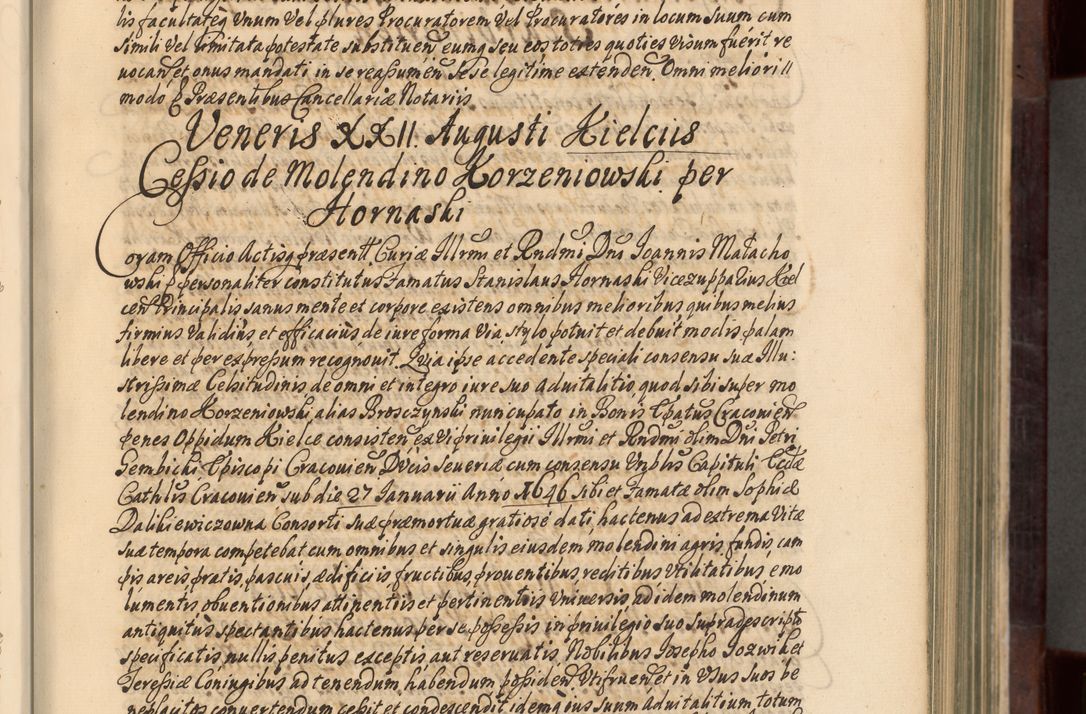 lis facultateq Unum Vel plures Procuratorem Vel Procuratores in locum suum cum
simili Vel limitata potestate substituen̄ eumq seu eos toties quoties Visum fuerit re
uocan̄ et onus mandati in se reassumen̄ Sese legitime extenden̄. Omni meliori
modo p Præsentibus Cancellariæ Notariis
Veneris XXII. Augusti Kielciis
Cessio de Molendino Korzeniowski per
Hornaski
Coram Officio Actisq præsentt Curiæ Illrmi et Rndmi Dni Ioannis Małacho
wski p personaliter constitutus Famatus Stanislaus Hornaski Vicezuppalius Kiel
cen̄ Principalis sanus mente et corpore existens omnibus melioribus quibus melius
firmius Validius et efficacius de iure forma Via stylo potuit et debuit modis palam
libere et per expressum recognouit. Quia ipse accedente speciali consensu suæ Illu:
strissimæ Celsitudinis de omni et integro iure suo aduitalitio quod sibi super mo
lendino Korzeniowski alias Brosczynski nuncupato in Bonis Epatus Cracouien̄
penes Oppidum Kielce consisten̄ ex Vi priuilegii Illrmi et Rndmi olim Dni Petri
Gembicki Episcopi Cracouien̄ Ducis Seueriæ cum consensu Vnblis Capituli Ecclæ
Cathlis Cracouien̄ sub die 27 Ianuarii Anno 1646 sibi et Famatæ olim Sophiæ
Dalikiewiczowna Consorti suæ præmortuæ gratiose dati hactenus ad extrema Vitæ
suæ tempora competebat cum omnibus et singulis eiusdem molendini agris fundis cam
pis areis pratis, pascuis, ædificiis fructibus, prouentibus, reditibus Vtilitatibus emo
lumentis obuentionibus attinentiis et pertinentiis Vniuersis, ad idem molendinum
antiquitus spectantibus hactenus per se possessis in priuilegio suo supradescripto
specificatis, nullis penitus exceptis, aut reseruatis, Nobilibus Iosepho Iozwik et
Teressiæ Coniugibus ad tenendum habendum possiden̄ Vtifruen̄ et in Vsus suos be
neplacitos conuertendum cessit et condescendit idemq ius suum Aduitalitium totum